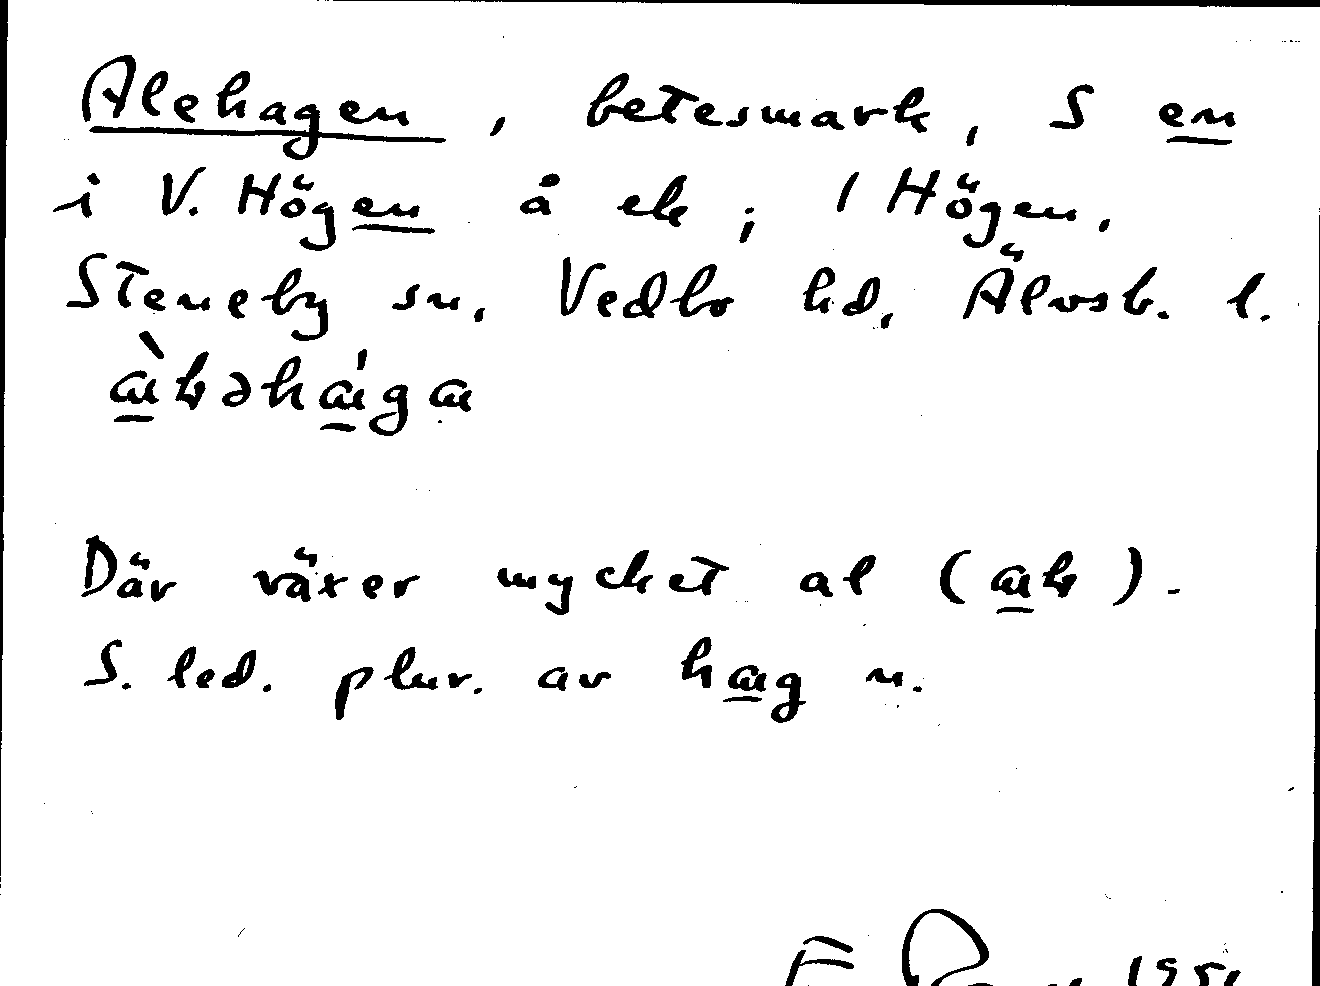 Alehagen, betesmark, S en
i V. Högen å ek; 1 Högen,
Steneby sn, Vedbo hd, Älvsb. l.
Där växer mycket al
S. led. plur. av hag n.